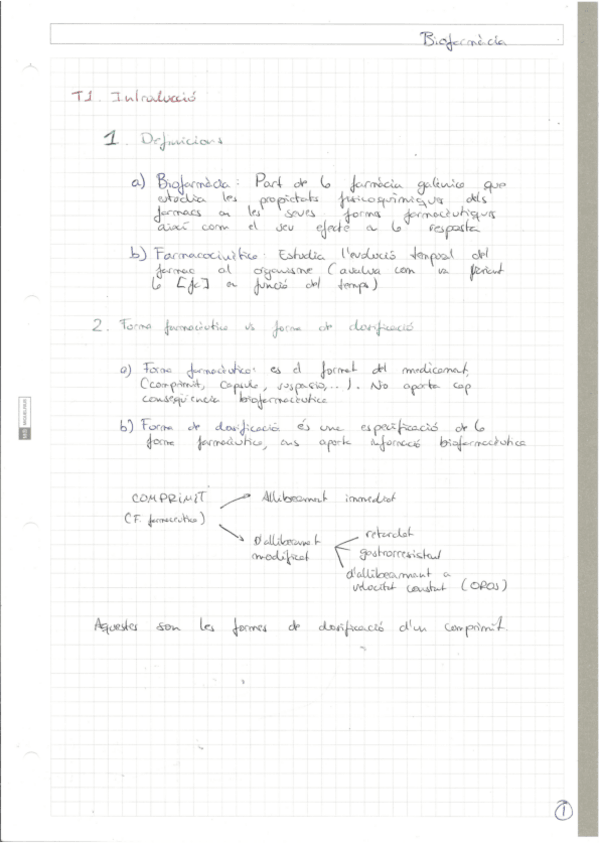 Biofarmàcia
T1. Introducció
1. Definicions
a) Biofarmàcia: Part de la farmàcia galènica que
estudia les propietats fisicoquímiques dels
farmacs en les seves formes farmacèutiques
així com el seu efecte a la resposta
b) Farmacocinètica: Estudia l'evolució temporal del
farmac al organisme (avalua com va
la [fc] en funció del temps)
2. Forma farmacèutica vs forma de dosificació
a) Forma farmacèutica: es el format del medicament,
(comprimit, capsula, suspasio,...). No aporta cap
conseqüència biofarmacèutica
b) Forma de dosificació és una especificació de la
forma farmacèutica, ens aporta informació biofarmacèutica
COMPRIMIT
(F. farmacèutica)
Alliberament immediat
D'alliberament
modificat
retardat
gastrorresistent
d'alliberament a
velocitat constant (OROS)
Aquestes son les formes de dosificació d'un comprimit.
MIQUELRIUS
1